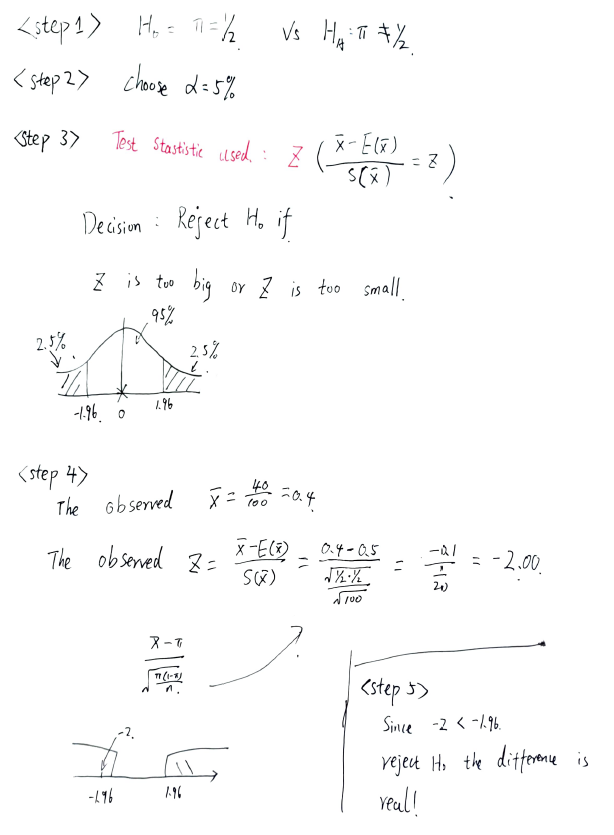 <step 1> H₀ = π = 1/2 vs H_A : π ≠ 1/2.
<step 2> choose α = 5%
<step 3> Test stastistic used : Z ( (x̄ - E(x̄)) / S(x̄) = Z ).
Decision : Reject H₀ if
Z is too big or Z is too small.
95%
2.5% 2.5%
-1.96 0 1.96
<step 4>
The observed x̄ = 40/100 = 0.4
The observed Z = (x̄ - E(x̄)) / S(x̄) = (0.4 - 0.5) / (√(1/2 · 1/2) / √100) = -0.1 / (1/20) = -2.00.
(x̄ - π) / √(π(1-π)/n)
-2.
-1.96 1.96
<step 5>
Since -2 < -1.96.
reject H₀ the difference is
real!